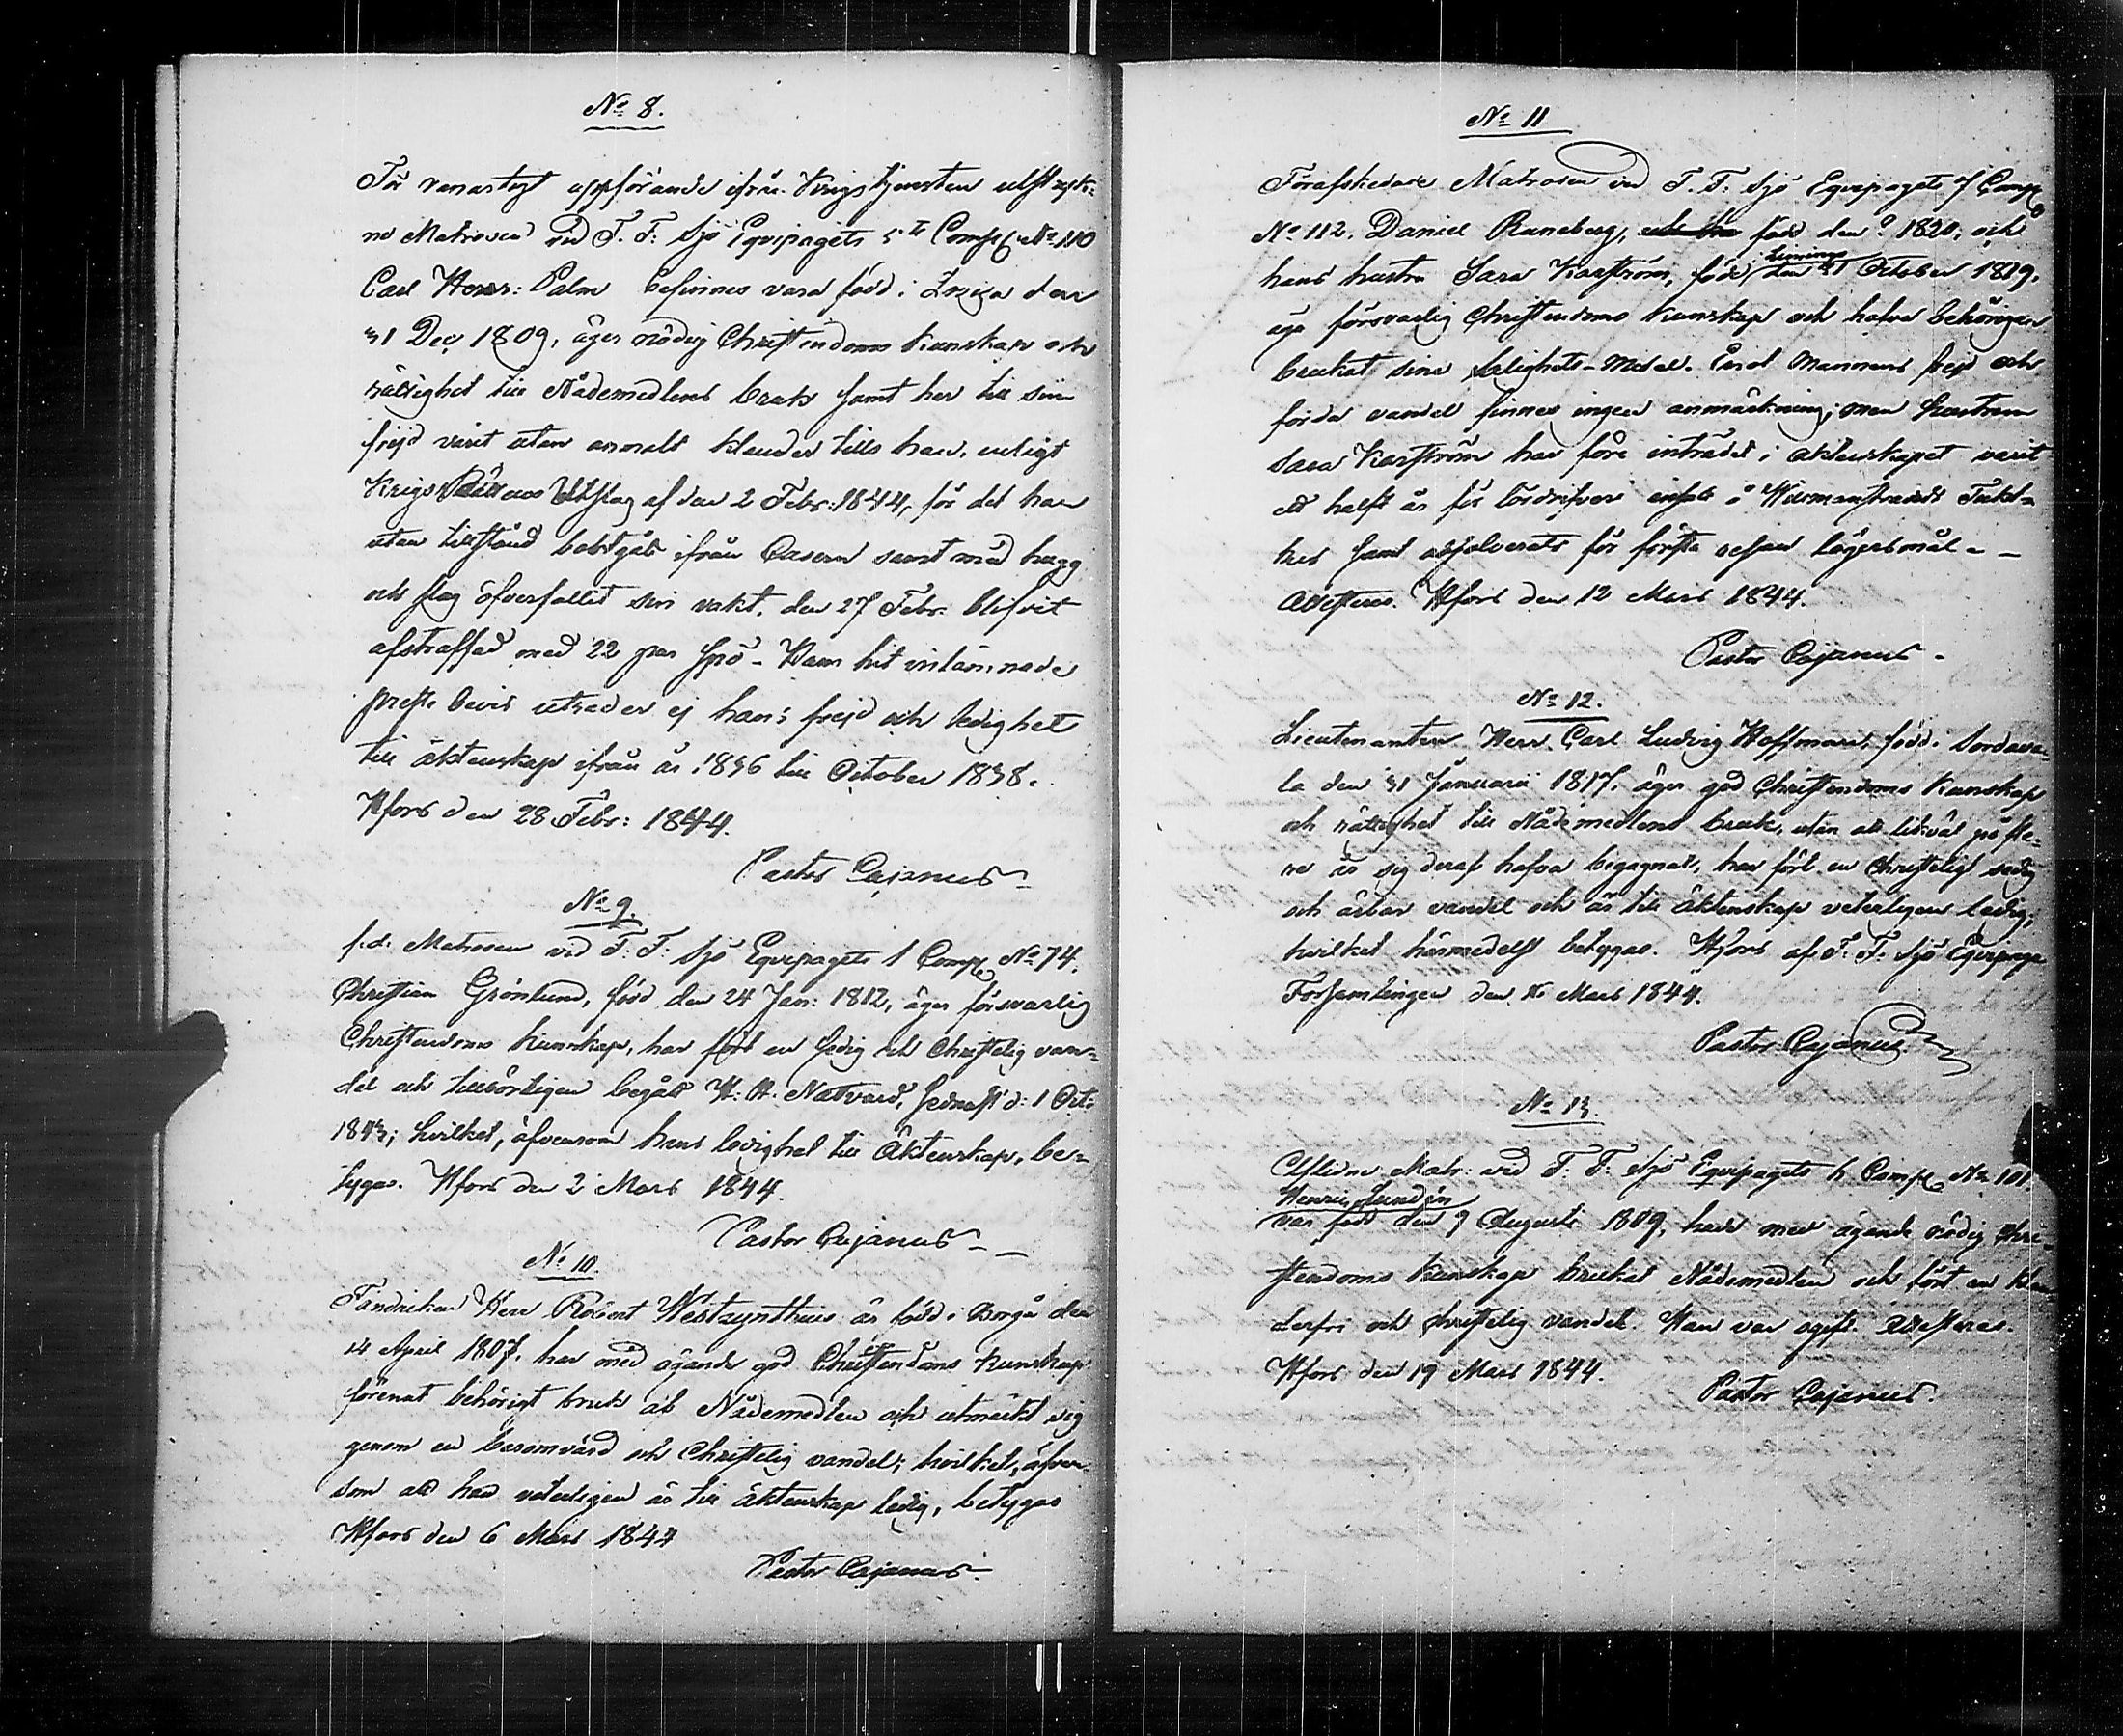 No 8.
För vanartigt uppförande ifrån Krigstjensten utstrukne
Matrosen vid F. F: Sjö Equipagets 5te Comp. No 110
Carl Henr: Palm befinnes vara född i den
31 Dec 1809, äger nödig Christendoms kunskap och
rättighet till Nådemedlens bruk samt har till sin
frejd varit utan anmält klander tills han, enligt
Krigs Rättens Utslag af den 2 Febr: 1844, för det han
utan tillstånd bortgått ifrån Casern samt med hugg
och slag öfverfallit sin vakt, den 27 Febr: blifvit
afstraffad med 22 par spö - Hans hit inlämnade
preste bevis utreder ej hans frejd och ledighet
till äktenskap ifrån år 1836 till October 1838.
Hfors den 28 Febr: 1844.
Pastor Cajanus
No 9.
f.d. Matrosen vid F: F: Sjö Equipagets 1 Comp. No 74,
Christian Grönlund, född den 24 Jan: 1812, äger försvarlig
Christendoms kunskap, har fört en sedig och Christelig van-
del och tillbörligen begått H. H. Nattvard, sednast d: 1 Oct:
1843; hvilket, äfvensom hans ledighet till Äktenskap, be-
tygas. Hfors den 2 Mars 1844.
Pastor Cajanus
No 10.
Fändriken Herr Robert Westzynthius är född i Borgå den
14 April 1807, har med ägande god Christendoms kunskap
förenat behörigt bruk af Nådemedlen och utmärkt sig
genom en berömvärd och Christelig vandel; hvilket, äfven-
som att han veterligen är till äktenskap ledig, betygas
Hfors den 6 Mars 1844
Pastor Cajanus
No 11
Förafskedade Matrosen vid F. F: Sjö Equipagets Comp.
No 112. Daniel Runeberg, född den ? 1820, och
hans hustru Sara Karström, född den 21 October 1819,
äga försvarlig Christendoms kunskap och hafva behörigen
brukat sina salighets-medel. Emot Mannens frejd och
förda vandel finnes ingen anmärkning; men hustrun
Sara Karström har före inträdet i äktenskapet varit
ett halft år för lösdrifveri insatt å Willmanstrands Tukt-
hus samt absolverats för första resan lägersmål -
Attesteras. Hfors den 12 Mars 1844.
Pastor Cajanus
No 12.
Lieutenanten Herr Carl Ludvig Hoffman, född i Sordava-
la den 31 Januarii 1817, äger god Christendoms kunskap
och rättighet till Nådemedlens bruk, utan att likväl på fle-
ra år sig deraf hafva begagnat, har fört en Christeligt sedig
och ärbar vandel och är till äktenskap veterligen ledig;
hvilket härmedelst betygas. Hfors af F: F: Sjö Equipage
Församlingen den 16 Mars 1844.
Pastor Cajanus
No 13.
Aflidne Matr: vid F: F: Sjö Equipagets Comp. No 101
Henric Lundén
var född den 9 Augusti 1809, hade med ägande nödig Chri-
stendoms kunskap brukat Nådemedlen och fört en klan-
derfri och christelig vandel. Han var ogift. Attesteras.
Hfors den 19 Mars 1844.
Pastor Cajanus.